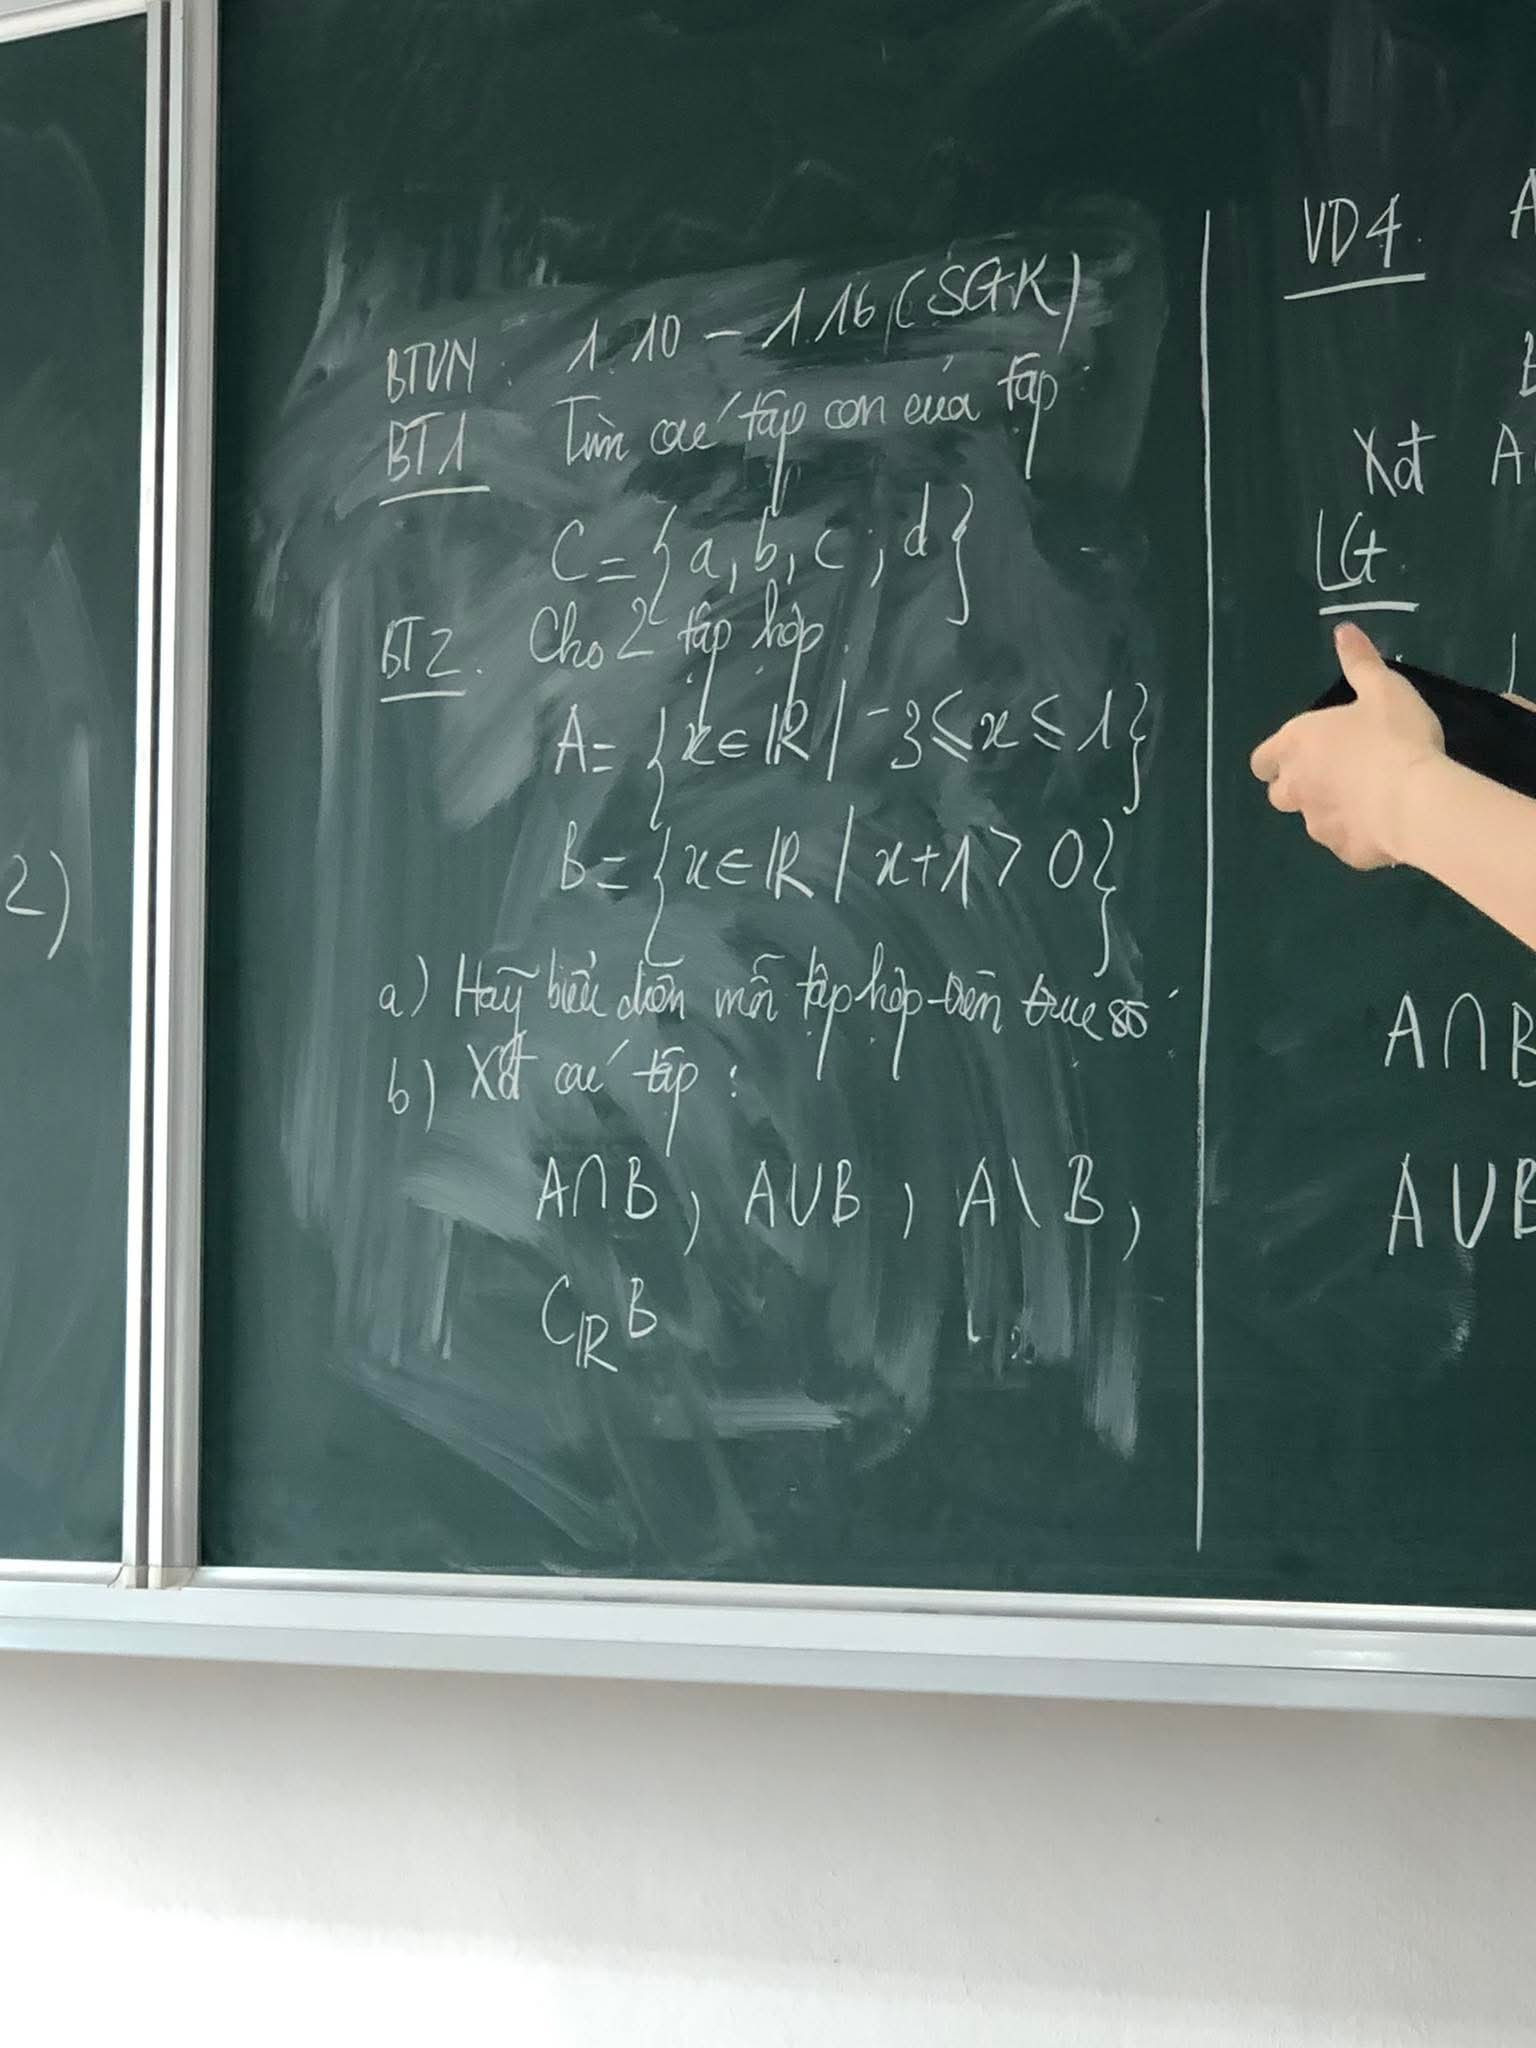 2)
BTVN: 1.10 - 1.16 (SGK)
BT1 Tìm các tập con của tập
C = {a, b, c; d}
BT2. Cho 2 tập hợp.
A = {x ∈ ℝ / -3 ≤ x ≤ 1}
B = {x ∈ ℝ / x + 1 > 0}
a) Hãy biểu diễn mỗi tập hợp trên trục số
b) Xđ các tập:
A ∩ B, A ∪ B, A \ B,
C_ℝ B
VD4. A
B
Xđ A
LG.
A ∩ B
A ∪ B